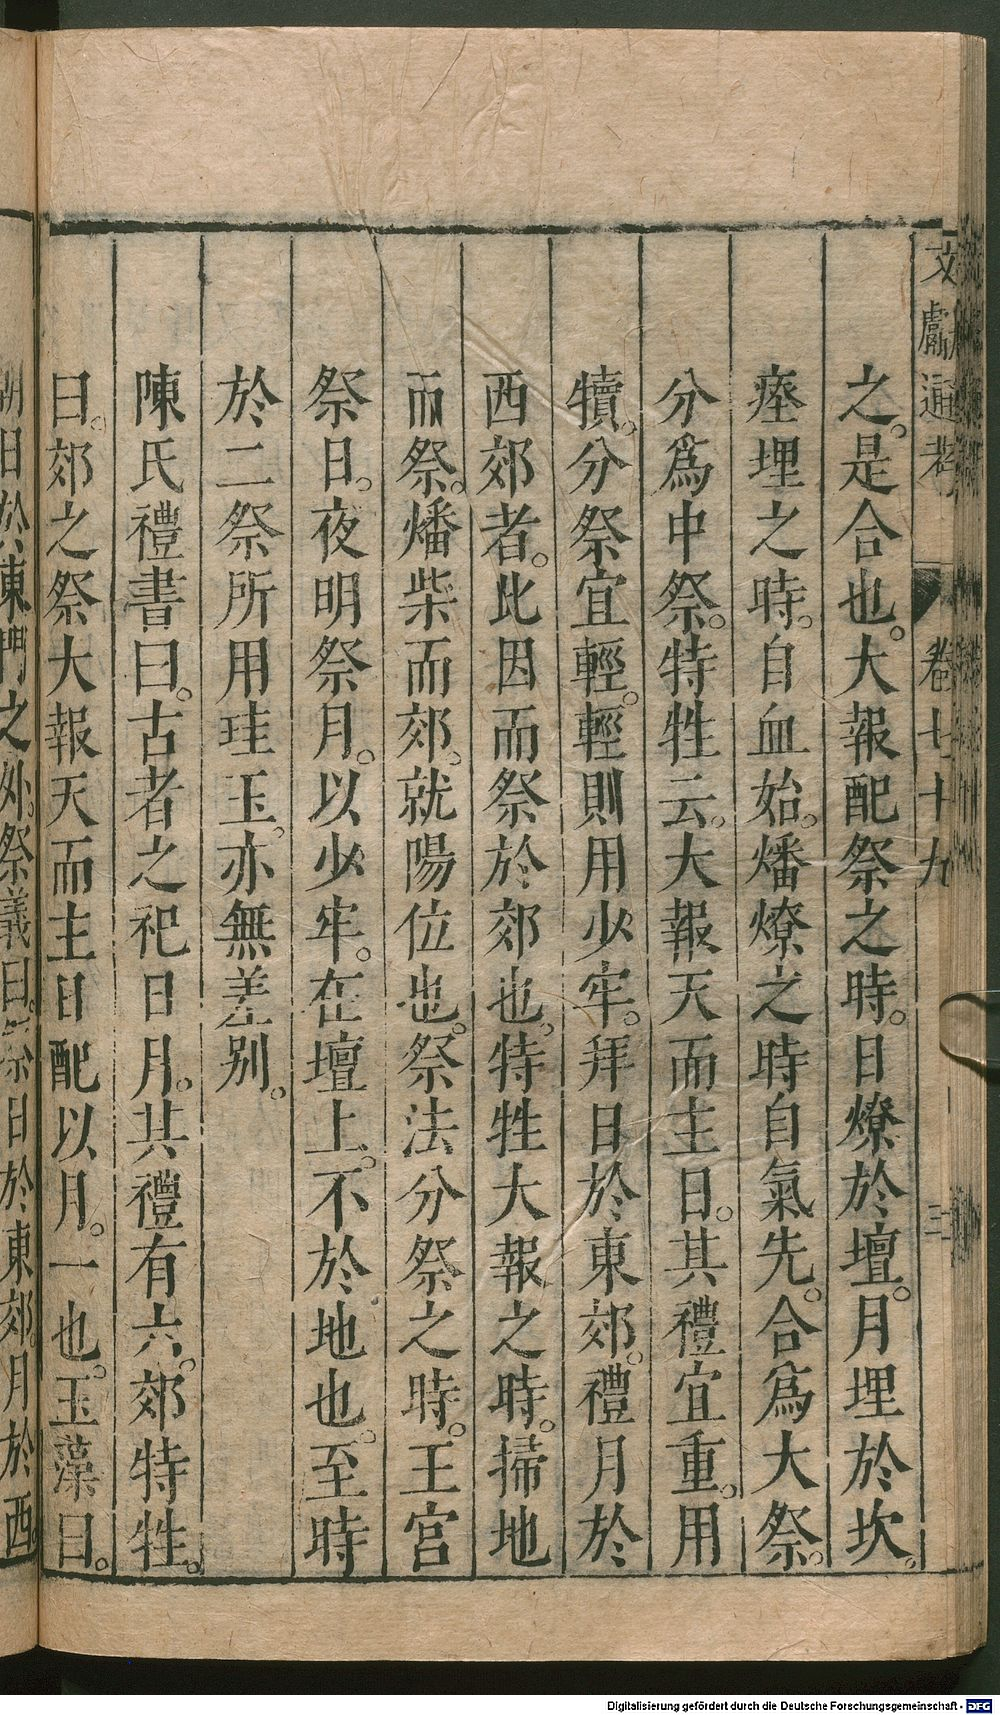 文獻通考 卷七十九 三
之。是合也。大報配祭之時。日燎於壇。月埋於坎。
瘞埋之時。自血始。燔燎之時自氣先。合爲大祭。
分爲中祭。特牲云。大報天而主日。其禮宜重。用
犢。分祭宜輕。輕則用少牢。拜日於東郊。禮月於
西郊者。此因而祭於郊也。特牲大報之時。掃地
而祭。燔柴而郊。就陽位也。祭法分祭之時。王宮
祭日。夜明祭月。以少牢。在壇上。不於地也。至時
於二祭所用珪玉。亦無差别。
陳氏禮書曰。古者之祀日月。其禮有六。郊特牲。
曰。郊之祭大報天而主日配以月。一也。玉藻曰。
朝日於東門之外。祭義曰。祭日於東郊。月於西
Digitalisierung gefördert durch die Deutsche Forschungsgemeinschaft - DFG